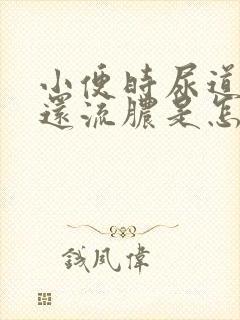 小便時尿道
還流膿是怎
錢風偉